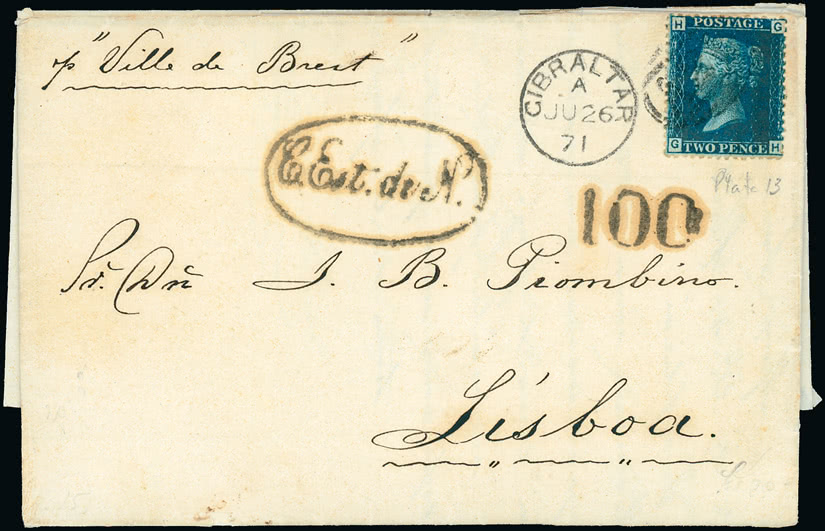 p "Ville de Brest"
H G
POSTAGE
TWO PENCE
G H
GIBRALTAR
A
JU 26
71
Plate 13
C. Est. de N.
100
Sr. Dn J. B. Piombino.
Lisboa.